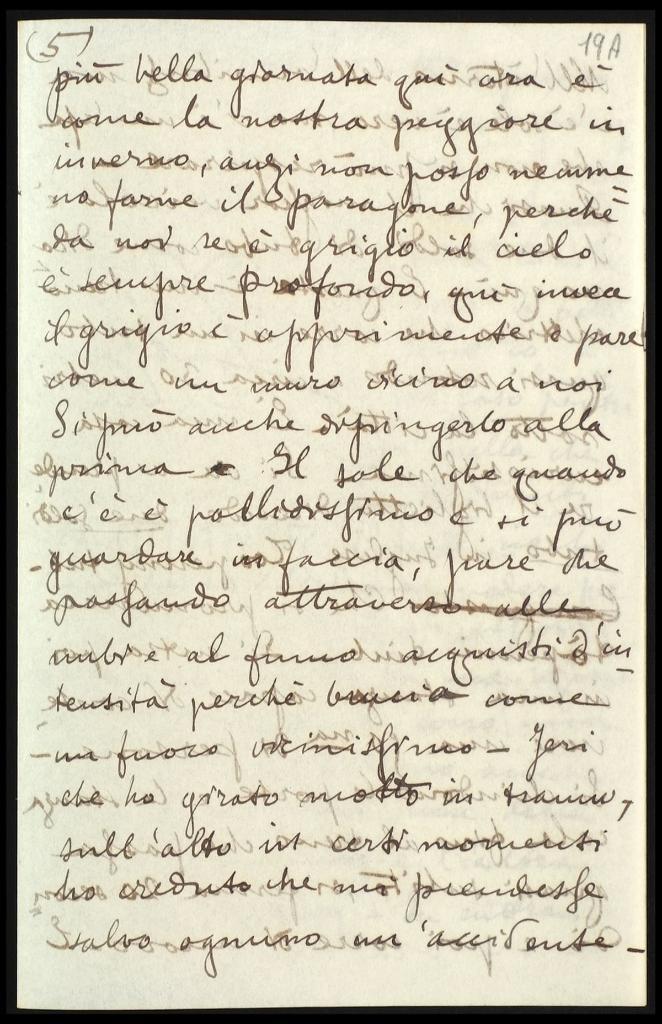 (5)
19A
più bella giornata qui ora è
come la nostra peggiore in
inverno, anzi non posso nemme
no farne il paragone, perchè
da noi se è grigio il cielo
è sempre profondo, qui invece
il grigio è opprimente e pare
come un muro vicino a noi
Si può anche dipingerlo alla
prima - Il sole che quando
c'è è pallidissimo e si può
guardare in faccia, pare che
passando attraverso alle
nubi e al fumo acquisti d'in
tensità perchè brucia come
un fuoco vicinissimo - Jeri
che ho girato molto in tramw,
sull'alto in certi momenti
ho creduto che mi prendesse
salvo ognuno un'accidente -